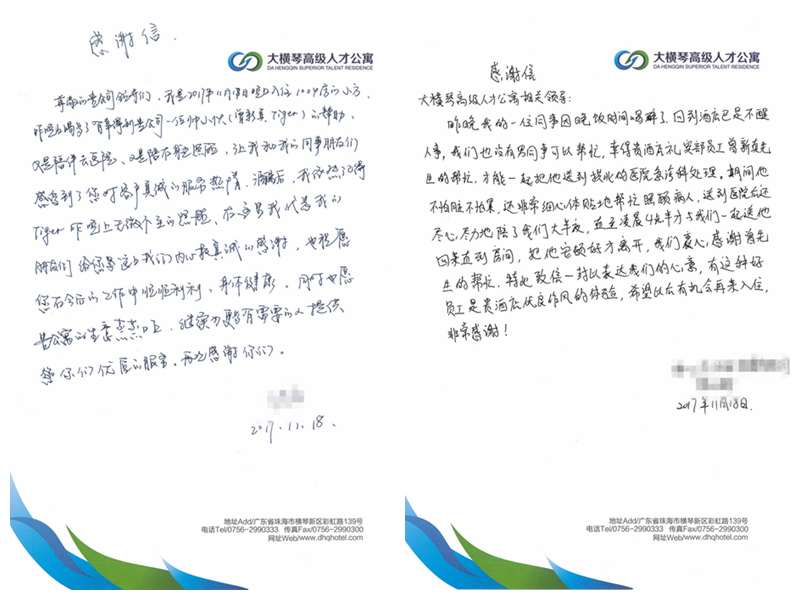 感谢信.
大横琴高级人才公寓
DA HENGQIN SUPERIOR TALENT RESIDENCE
尊敬的贵公司领导们，我是2017年11月18日晚上入住1004房的小方，
昨晚喝多了，有幸得到贵公司一位帅小伙(曾新良Tiger)的帮助，
又是陪伴去医院、又是陪在身边照顾，让我和我的同事朋友们
感受到了您对客户真诚的服务热情。
Tiger昨晚上无微不至的照顾。在这里我代表我的
朋友们给您寄送上我们内心最真诚的感谢，也祝愿
您在今后的工作中顺顺利利，身体健康。同时也愿
贵公寓的生意蒸蒸日上，继续为更多有需要的人提供
你们优质的服务。再次感谢你们。
2017.11.18.
地址Add/广东省珠海市横琴新区彩虹路139号
电话Tel/0756-2990333 传真Fax/0756-2990300
网址Web/www.dhqhotel.com
大横琴高级人才公寓
DA HENGQIN SUPERIOR TALENT RESIDENCE
感谢信
大横琴高级人才公寓相关领导：
昨晚我的一位同事因晚饭时间喝醉了，回到酒店已是不醒
人事，我们也没有男同事可以帮忙，幸得贵酒店礼宾部员工曾新良先
生的帮忙，才能一起把他送到拱北的医院急诊科处理。期间他
不怕脏不怕累，还非常细心体贴地帮忙照顾病人，送到医院后还
尽心尽力地陪了我们大半夜，直至凌晨4点半才与我们一起送他
回来直到房间，把他安顿好才离开，我们衷心感谢曾先
生的帮忙。特此致信一封以表达我们的心意，有这种好
员工是贵酒店优良作风的体验，希望以后有机会再来入住，
非常感谢！
2017年11月18日.
地址Add/广东省珠海市横琴新区彩虹路139号
电话Tel/0756-2990333 传真Fax/0756-2990300
网址Web/www.dhqhotel.com